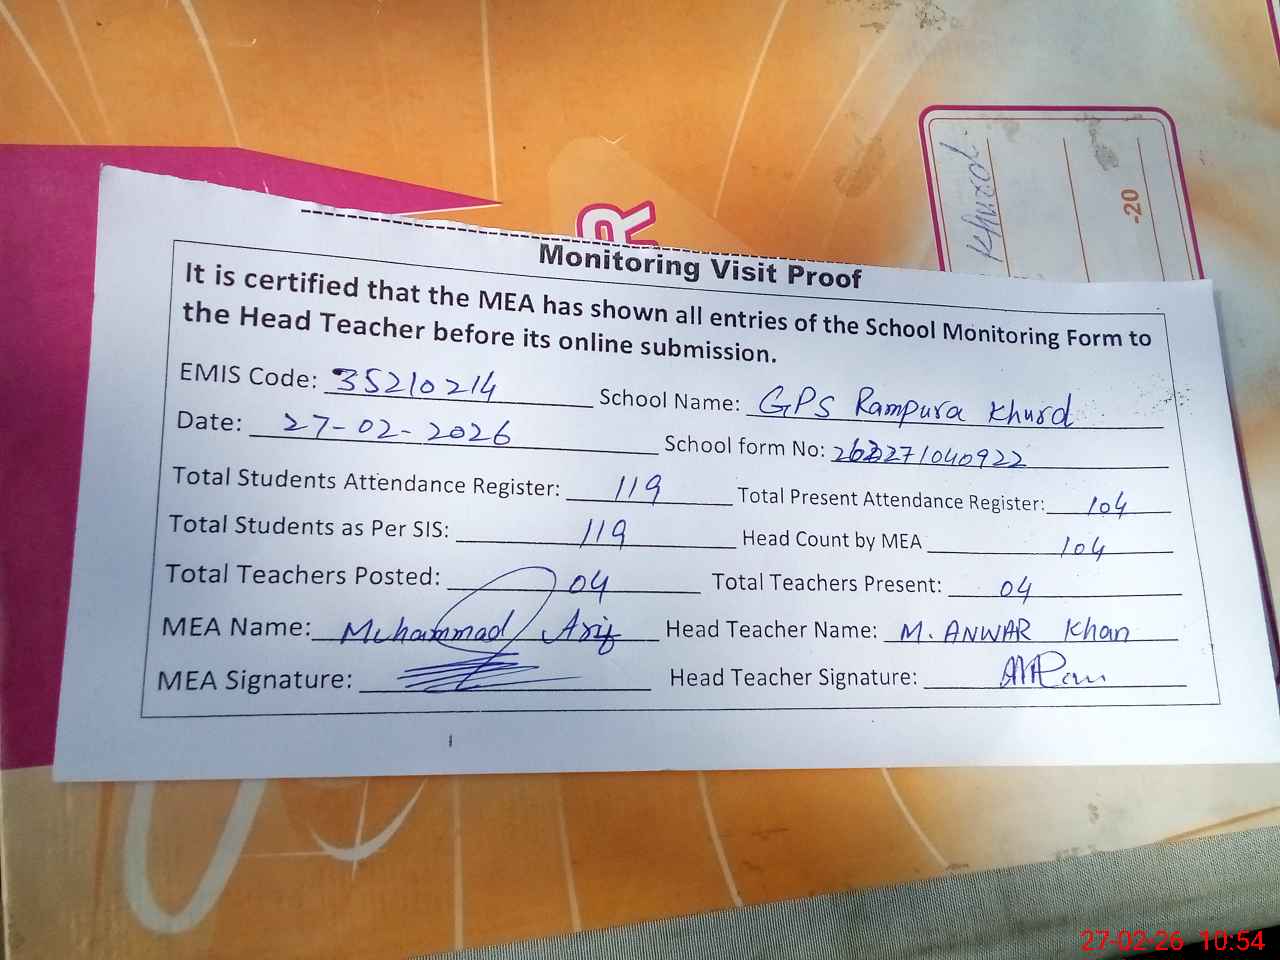 R
Khurd
-20
Monitoring Visit Proof
It is certified that the MEA has shown all entries of the School Monitoring Form to
the Head Teacher before its online submission.
EMIS Code: 35210214 School Name: GPS Rampura Khurd
Date: 27-02-2026 School form No:
Total Students Attendance Register: 119 Total Present Attendance Register: 104
Total Students as Per SIS: 119 Head Count by MEA 104
Total Teachers Posted: 04 Total Teachers Present: 04
MEA Name: Muhammad Arif Head Teacher Name: M. ANWAR Khan
MEA Signature: Head Teacher Signature:
27-02-26 10:54